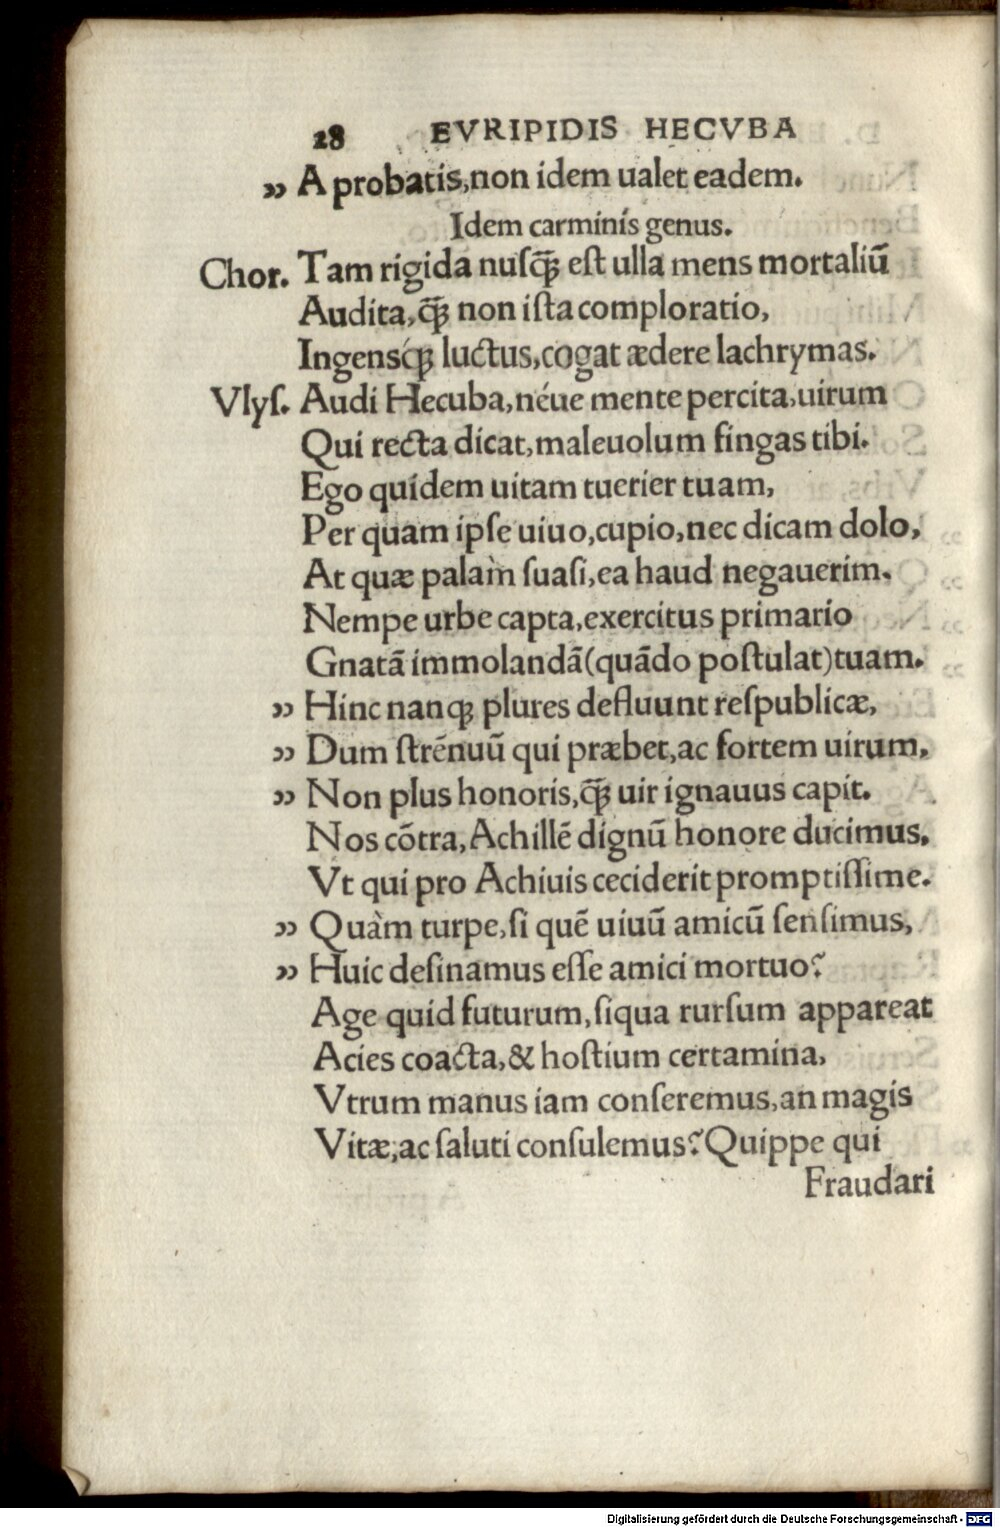 28 EVRIPIDIS HECVBA
„ A probatis,non idem ualet eadem.
Idem carminis genus.
Chor. Tam rigida nuſq̃ꝫ eſt ulla mens mortaliũ
Audita,q̃ꝫ non iſta comploratio,
Ingensq́ꝫ luctus,cogat ædere lachrymas.
Vlyſ. Audi Hecuba,néue mente percita,uirum
Qui recta dicat,maleuolum fingas tibi.
Ego quidem uitam tuerier tuam,
Per quam ipſe uiuo,cupio,nec dicam dolo,
At quæ palàm ſuaſi,ea haud negauerim.
Nempe urbe capta,exercitus primario
Gnatã immolandã(quãdo poſtulat)tuam.
„ Hinc nanqꝫ plures defluunt reſpublicæ,
„ Dum ſtrẽnuũ qui præbet,ac fortem uirum,
„ Non plus honoris,q̃ꝫ uir ignauus capit.
Nos cõtra,Achillẽ dignũ honore ducimus,
Vt qui pro Achiuis ceciderit promptiſſime.
„ Quàm turpe,ſi quẽ uiuũ amicũ ſenſimus,
„ Huic deſinamus eſſe amici mortuo?
Age quid futurum,ſiqua rurſum appareat
Acies coacta,& hoſtium certamina,
Vtrum manus iam conſeremus,an magis
Vitæ,ac ſaluti conſulemus?Quippe qui
Fraudari
Digitalisierung gefördert durch die Deutsche Forschungsgemeinschaft - DFG